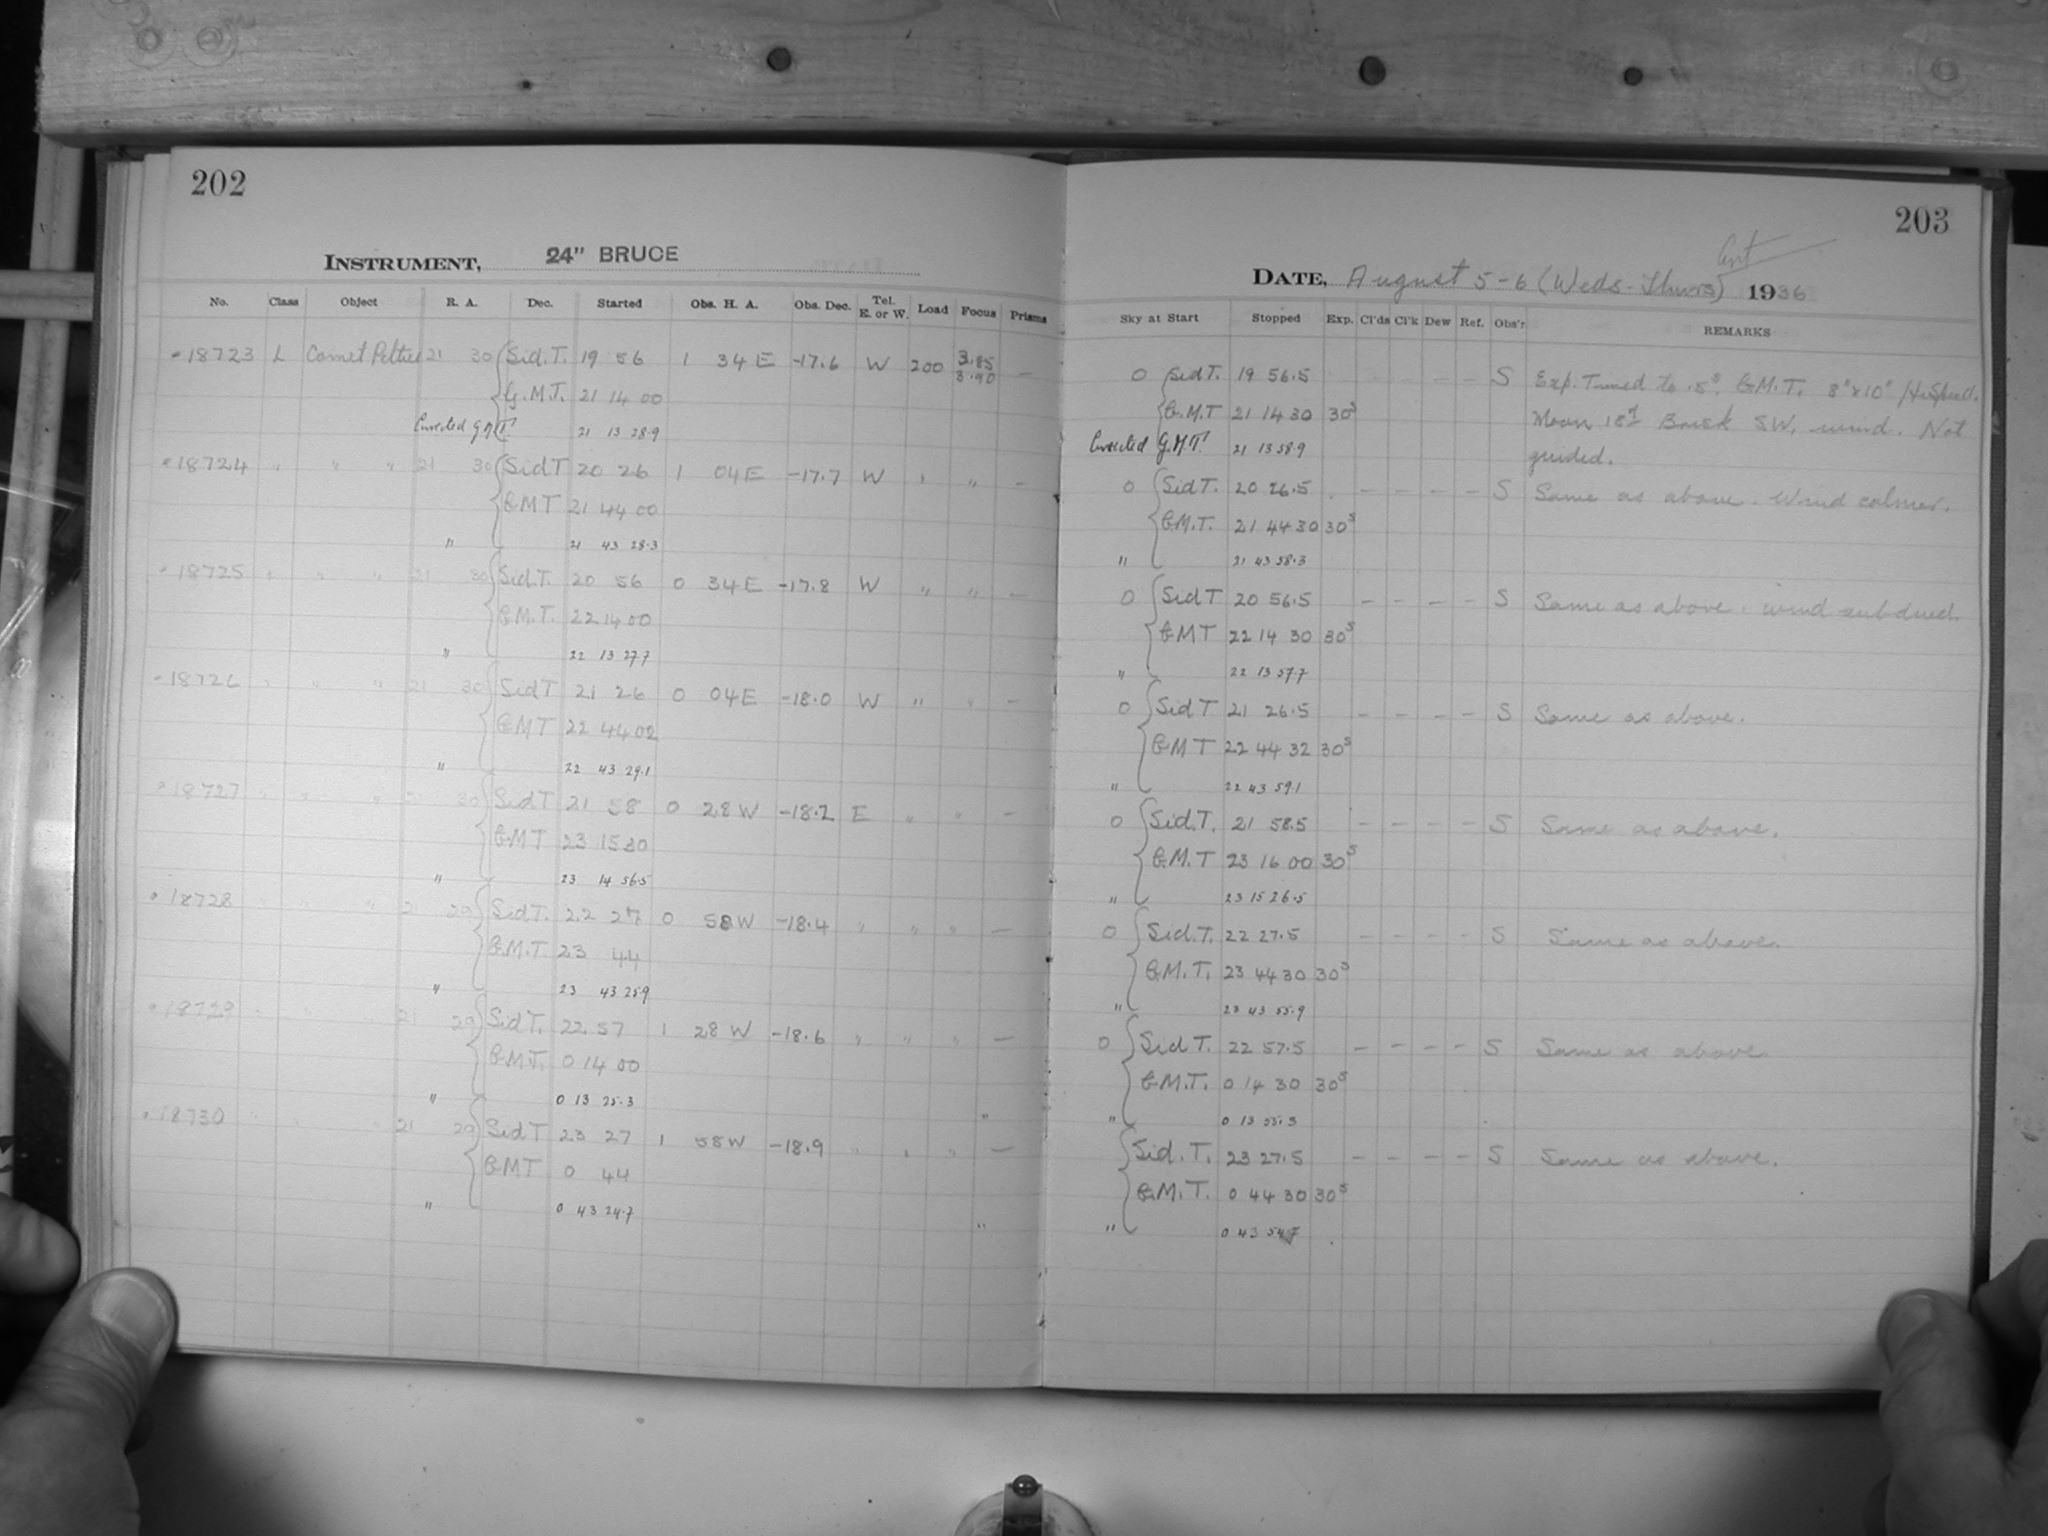 202
INSTRUMENT, 24" BRUCE
No. Class Object R. A. Dec. Started Obs. H. A. Obs. Dec. Tel. E. or W. Load Focus Prisms
18723 L Comet Peltier 21 30 Sid. T. 19 56 1 34 E -17.6 W 200 3.85 —
3.90
G.M.T. 21 14 00
Corrected G.M.T. 21 13 28.9
18724 " " " 21 30 Sid T 20 26 1 04 E -17.7 W " " —
G.M.T 21 44 00
" 21 43 28.3
18725 " " " 21 30 Sid.T. 20 56 0 34 E -17.8 W " " —
G.M.T. 22 14 00
" 22 13 27.7
18726 " " " 21 30 Sid T 21 26 0 04 E -18.0 W " " —
G.M.T 22 44 02
" 22 43 29.1
18727 " " " 21 30 Sid T 21 58 0 28 W -18.2 E " " —
G.M.T 23 15 30
" 23 14 56.5
18728 " " " 21 29 Sid T. 22 27 0 58 W -18.4 " " " —
G.M.T. 23 44
" 23 43 25.9
18729 " " " 21 29 Sid T. 22 57 1 28 W -18.6 " " " —
G.M.T. 0 14 00
" 0 13 25.3 "
18730 " " " 21 29 Sid T 23 27 1 58 W -18.9 " " " —
G.M.T 0 44
" 0 43 24.7 "
203
DATE, August 5-6 (Weds-Thurs) 1936
Sky at Start Stopped Exp. Cl'ds Cl'k Dew Ref. Obs'r REMARKS
0 Sid T. 19 56.5 - - - - S Exp. Timed to .5s. G.M.T. 8"x10"
G.M.T 21 14 30 30s Moon 18d Brisk S.W. wind. Not
Corrected G.M.T. 21 13 58.9 guided.
0 Sid T. 20 26.5 - - - - S Same as above. Wind calmer.
G.M.T. 21 44 30 30s
" 21 43 58.3
0 Sid T 20 56.5 - - - - S Same as above. wind subdued.
G.M.T 22 14 30 30s
" 22 13 57.7
0 Sid T 21 26.5 - - - - S Same as above.
G.M.T 22 44 32 30s
" 22 43 59.1
0 Sid.T. 21 58.5 - - - - S Same as above.
G.M.T 23 16 00 30s
" 23 15 26.5
0 Sid.T. 22 27.5 - - - - S Same as above.
G.M.T. 23 44 30 30s
" 23 43 55.9
0 Sid T. 22 57.5 - - - - S Same as above.
G.M.T. 0 14 30 30s
" 0 13 55.3
Sid. T. 23 27.5 - - - - S Same as above.
G.M.T. 0 44 30 30s
" 0 43 54.7